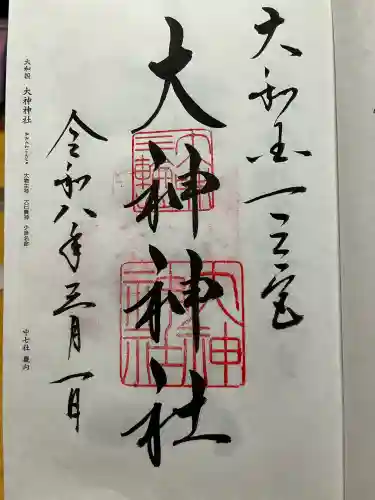 大和国一之宮
大神神社
三輪
大神神社
令和八年三月一日
大和国 大神神社
中七社 畿内